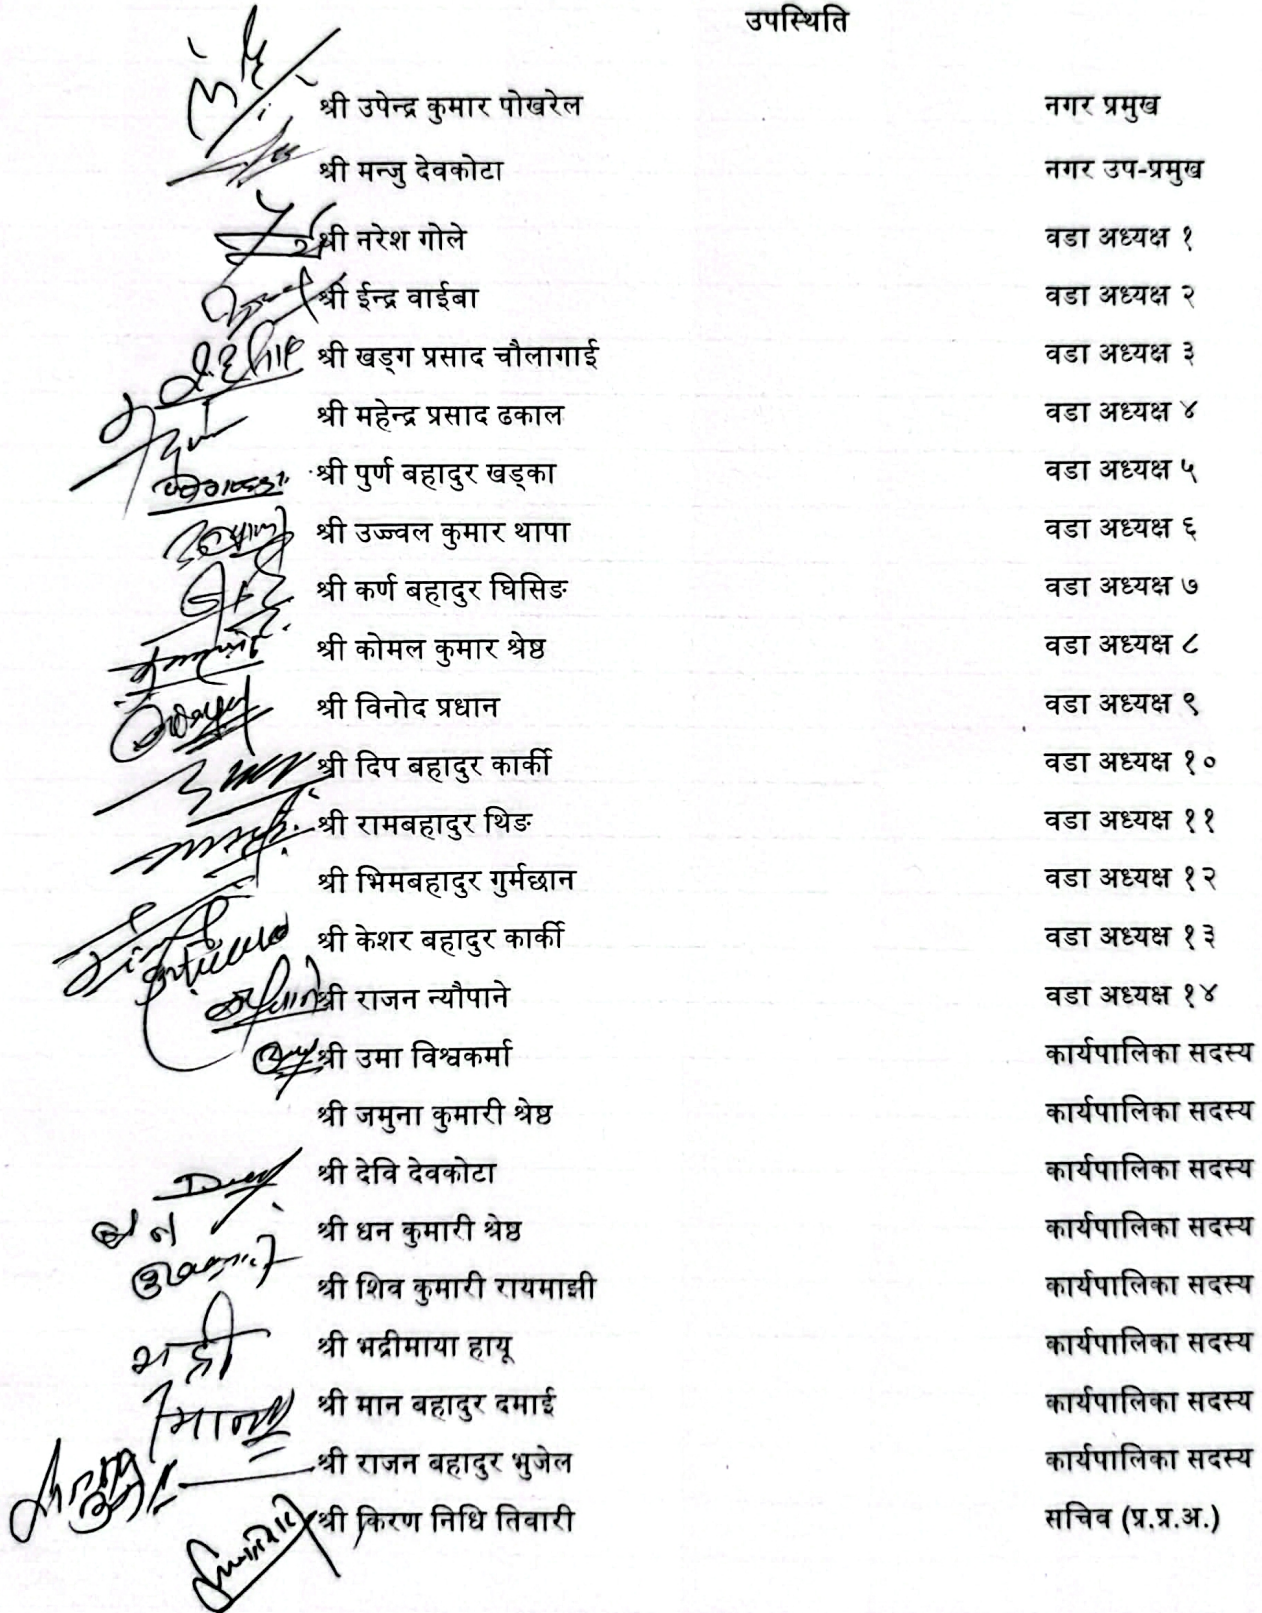 उपस्थिति
श्री उपेन्द्र कुमार पोखरेल नगर प्रमुख
श्री मन्जु देवकोटा नगर उप-प्रमुख
श्री नरेश गोले वडा अध्यक्ष १
श्री ईन्द्र वाईबा वडा अध्यक्ष २
श्री खड्ग प्रसाद चौलागाई वडा अध्यक्ष ३
श्री महेन्द्र प्रसाद ढकाल वडा अध्यक्ष ४
श्री पुर्ण बहादुर खड्का वडा अध्यक्ष ५
श्री उज्ज्वल कुमार थापा वडा अध्यक्ष ६
श्री कर्ण बहादुर घिसिङ वडा अध्यक्ष ७
श्री कोमल कुमार श्रेष्ठ वडा अध्यक्ष ८
श्री विनोद प्रधान वडा अध्यक्ष ९
श्री दिप बहादुर कार्की वडा अध्यक्ष १०
श्री रामबहादुर थिङ वडा अध्यक्ष ११
श्री भिमबहादुर गुर्मछान वडा अध्यक्ष १२
श्री केशर बहादुर कार्की वडा अध्यक्ष १३
श्री राजन न्यौपाने वडा अध्यक्ष १४
श्री उमा विश्वकर्मा कार्यपालिका सदस्य
श्री जमुना कुमारी श्रेष्ठ कार्यपालिका सदस्य
श्री देवि देवकोटा कार्यपालिका सदस्य
धन श्री धन कुमारी श्रेष्ठ कार्यपालिका सदस्य
श्री शिव कुमारी रायमाझी कार्यपालिका सदस्य
भद्री श्री भद्रीमाया हायू कार्यपालिका सदस्य
मान श्री मान बहादुर दमाई कार्यपालिका सदस्य
श्री राजन बहादुर भुजेल कार्यपालिका सदस्य
श्री किरण निधि तिवारी सचिव (प्र.प्र.अ.)